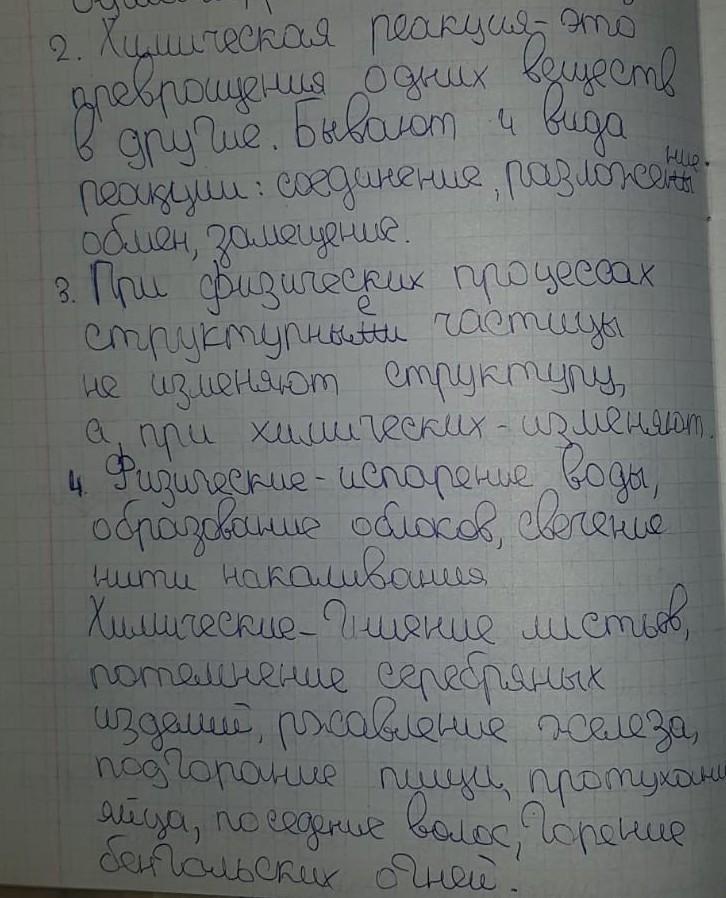 2. Химическая реакция - это
превращения одних веществ
в другие. Бывают 4 вида
реакции: соединение, разложение.
обмен, замещение.
3. При физических процессах
структурные частицы
не изменяют структуру,
а, при химических - изменяют.
4. Физические - испарение воды,
образование облоков, свечение
нити накаливания
Химические - Гниение листьев,
потемнение серебряных
изделий, ржавление железа,
подгорание пищи, протухани
яйца, поседение волос, горение
бенгальских огней.